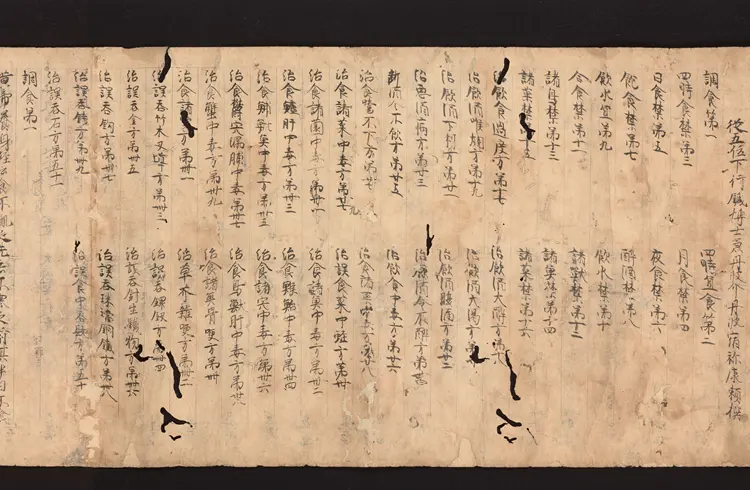 従五位下行鍼博士兼丹波介丹波宿祢康頼撰
調食第一 四時宜食第二
四時食禁第三 月食禁第四
日食禁第五 夜食禁第六
飽食禁第七 醉酒禁第八
飲水宜第九 飲水禁第十
合食禁第十一 諸獣禁第十二
諸鳥禁第十三 諸魚禁第十四
諸菓禁第十五 諸菜禁第十六
治飲食過度方第十七 治飲酒大醉方第十八
治飲酒喉爛方第十九 治飲酒大渇方第廿
治飲酒下利方第廿一 治飲酒腹満方第廿二
治悪酒病方第廿三 治飲酒令不醉方第廿四
断酒令不飲方第廿五 治飲食中毒方第廿六
治食噎不下方第廿七 治食諸中毒方第廿八
治食諸菜中毒方第廿九 治誤食菜中蛭方第卅
治食諸菌中毒方第卅一 治食諸魚中毒方第卅二
治食鱸肝中毒方第卅三 治食中毒方第卅四
治食中毒方第卅五 治食諸宍中毒方第卅六
治食欝宍漏脯中毒方第卅七 治食鳥獣肝中毒方第卅八
治食蟹中毒方第卅九 治食諸魚骨哽方第卌
治食諸方第卌一 治草木雑哽方第卌二
治誤呑竹木叉導方第卌三 治誤呑方第卌四
治誤呑金方第卌五 治誤呑針生鐵物方第卌六
治誤呑鈎方第卌七 治誤呑珠璫銅鐵方第卌八
治誤呑錢方第卌九 治誤食中呑髮方第五十
治誤呑石方第五十一
調食第一
黄帝養身経云食不飢之先